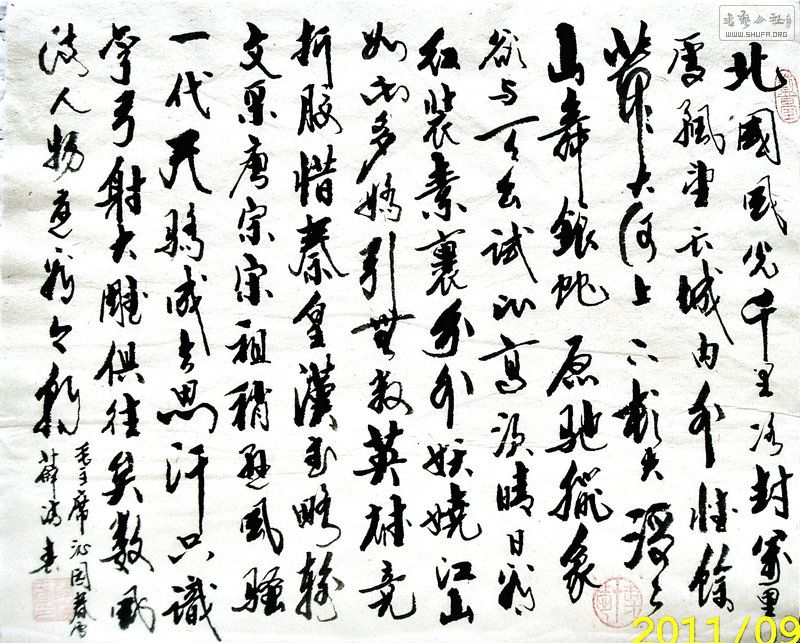 书艺公社
WWW.SHUFA.ORG
北國風光千里冰封萬里
雪飄望长城内外惟餘
莽々大河上下頓失滔々
山舞銀蛇原馳臘象
欲与天公試比高須晴日看
红裝素裹分外妖嬈江山
如此多嬌引無数英雄竞
折腰惜秦皇漢武略輸
文采唐宗宋祖稍逊風騷
一代天驕成吉思汗只識
彎弓射大雕俱往矣数風
流人物还看今朝
毛主席沁园春雪
薛
2011/09